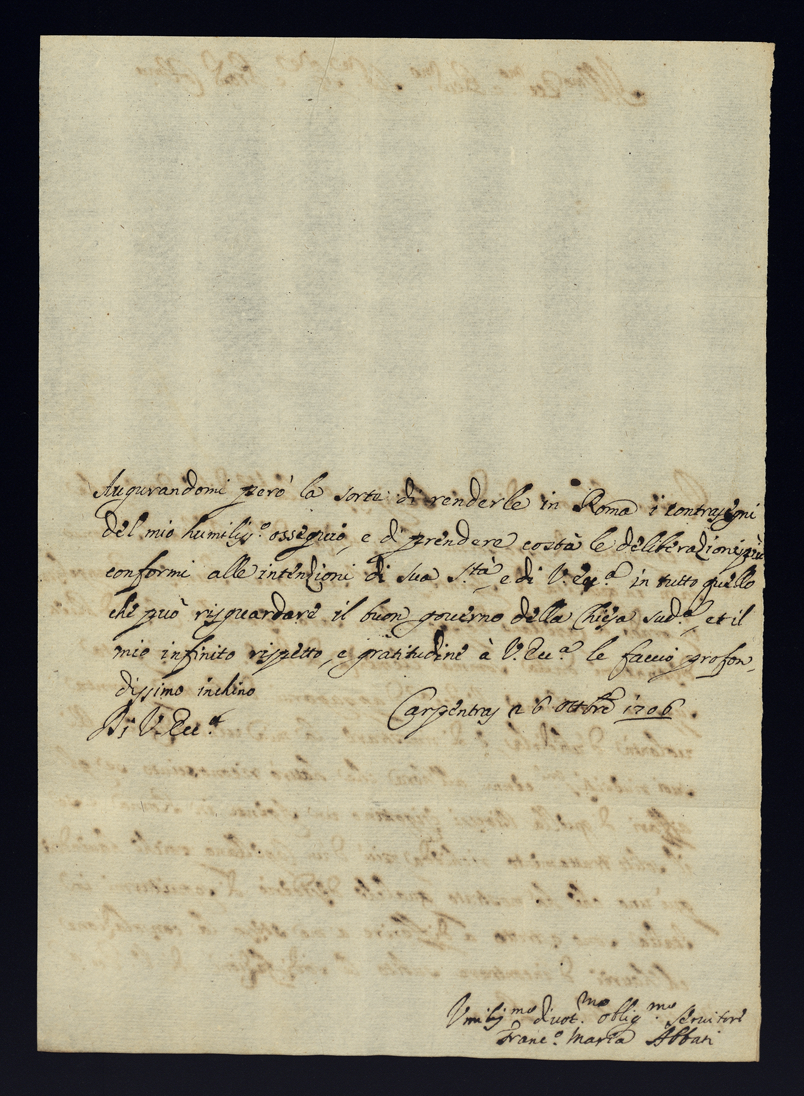 Augurandomi però la sorte di renderle in Roma i contrasegni
del mio humiliss.º ossequio, e di prendere costà le deliberazioni più
conformi alle intenzioni di sua S.tà, e di V. Ecc.ª in tutto quello
che può risguardare il buon governo della Chiesa sud.ª, et il
mio infinito rispetto, e gratitudine à V. Ecc.ª le faccio profon-
dissimo inchino
Di V. Ecc.ª
Carpentras 6 ottobre 1706
Umiliss.mo divot.mo oblig.mo servitore
Franc.º Maria Abbati